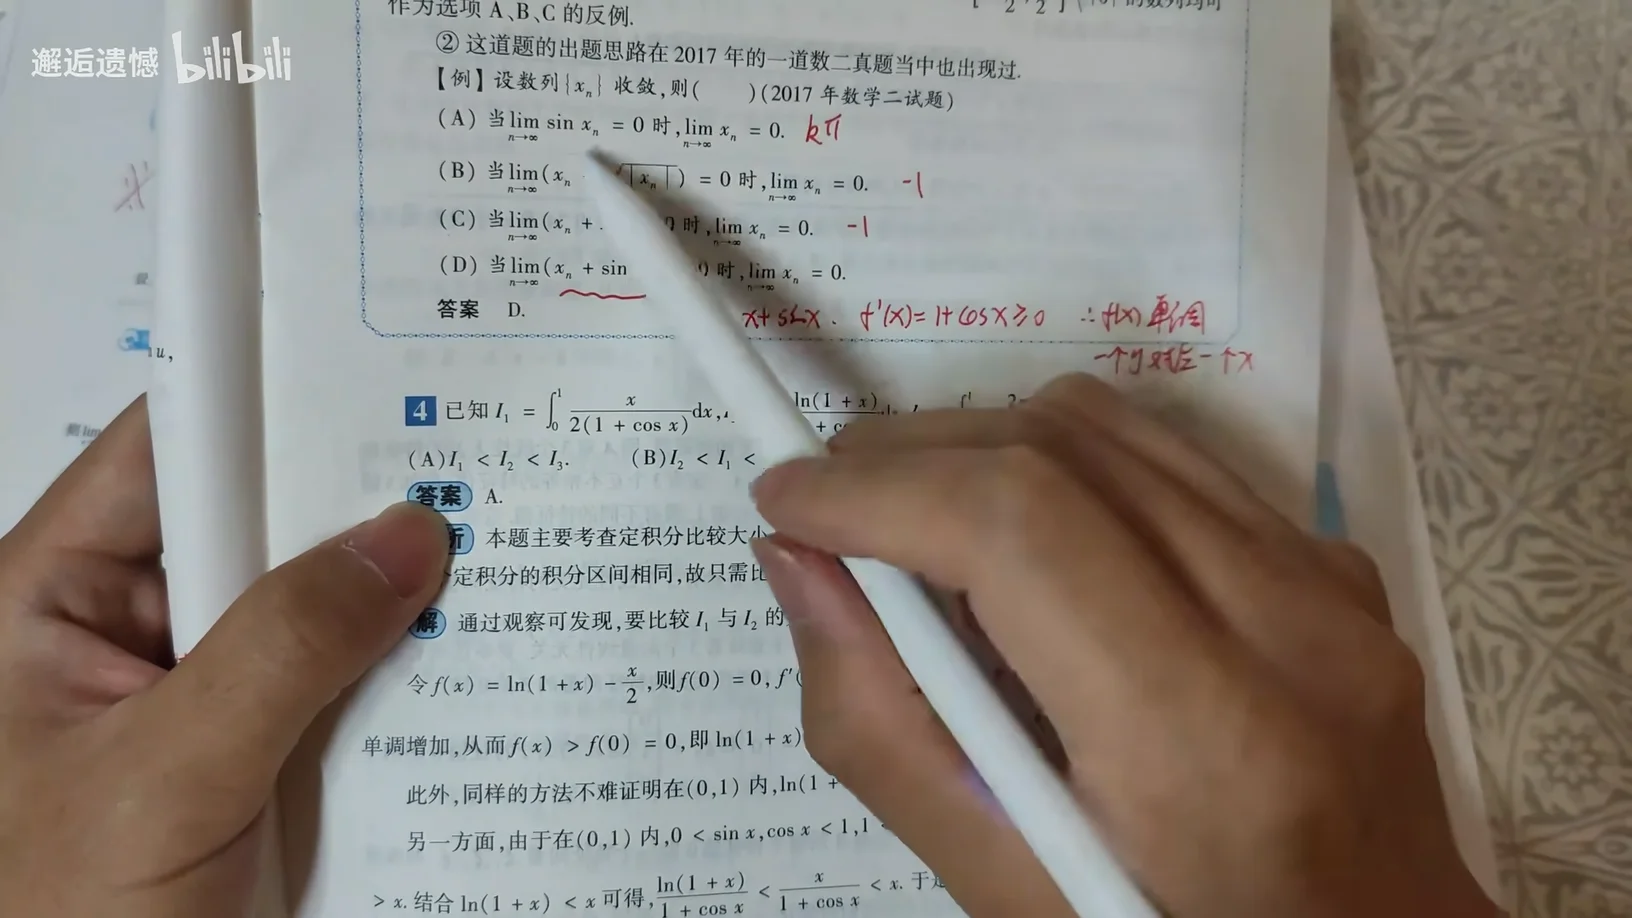 邂逅遗憾 bilibili
作为选项 A、B、C 的反例.
② 这道题的出题思路在 2017 年的一道数二真题当中也出现过.
【例】设数列{xₙ} 收敛,则( )(2017 年数学二试题)
(A) 当 lim n→∞ sin xₙ = 0 时, lim n→∞ xₙ = 0. kπ
(B) 当 lim n→∞ (xₙ √|xₙ|) = 0 时, lim n→∞ xₙ = 0. -1
(C) 当 lim n→∞ (xₙ + 时, lim n→∞ xₙ = 0. -1
(D) 当 lim n→∞ (xₙ + sin 时, lim n→∞ xₙ = 0.
答案 D.
f'(x) = 1 + cos x ≥ 0 ∴ f(x) 单调
一个y对应一个x
u,
4 已知 I₁ = ∫₀¹ x/2(1 + cos x) dx, ln(1 + x)
(A) I₁ < I₂ < I₃. (B) I₂ < I₁ <
答案 A.
析 本题主要考查定积分比较大小
定积分的积分区间相同,故只需比
解 通过观察可发现,要比较 I₁ 与 I₂ 的
令 f(x) = ln(1+x) - x/2, 则 f(0) = 0, f'(
单调增加,从而 f(x) > f(0) = 0, 即 ln(1 + x)
此外,同样的方法不难证明在(0,1) 内, ln(1 +
另一方面,由于在(0,1) 内, 0 < sin x, cos x < 1, 1
> x. 结合 ln(1 + x) < x 可得, ln(1 + x)/1 + cos x < x/1 + cos x < x. 于是